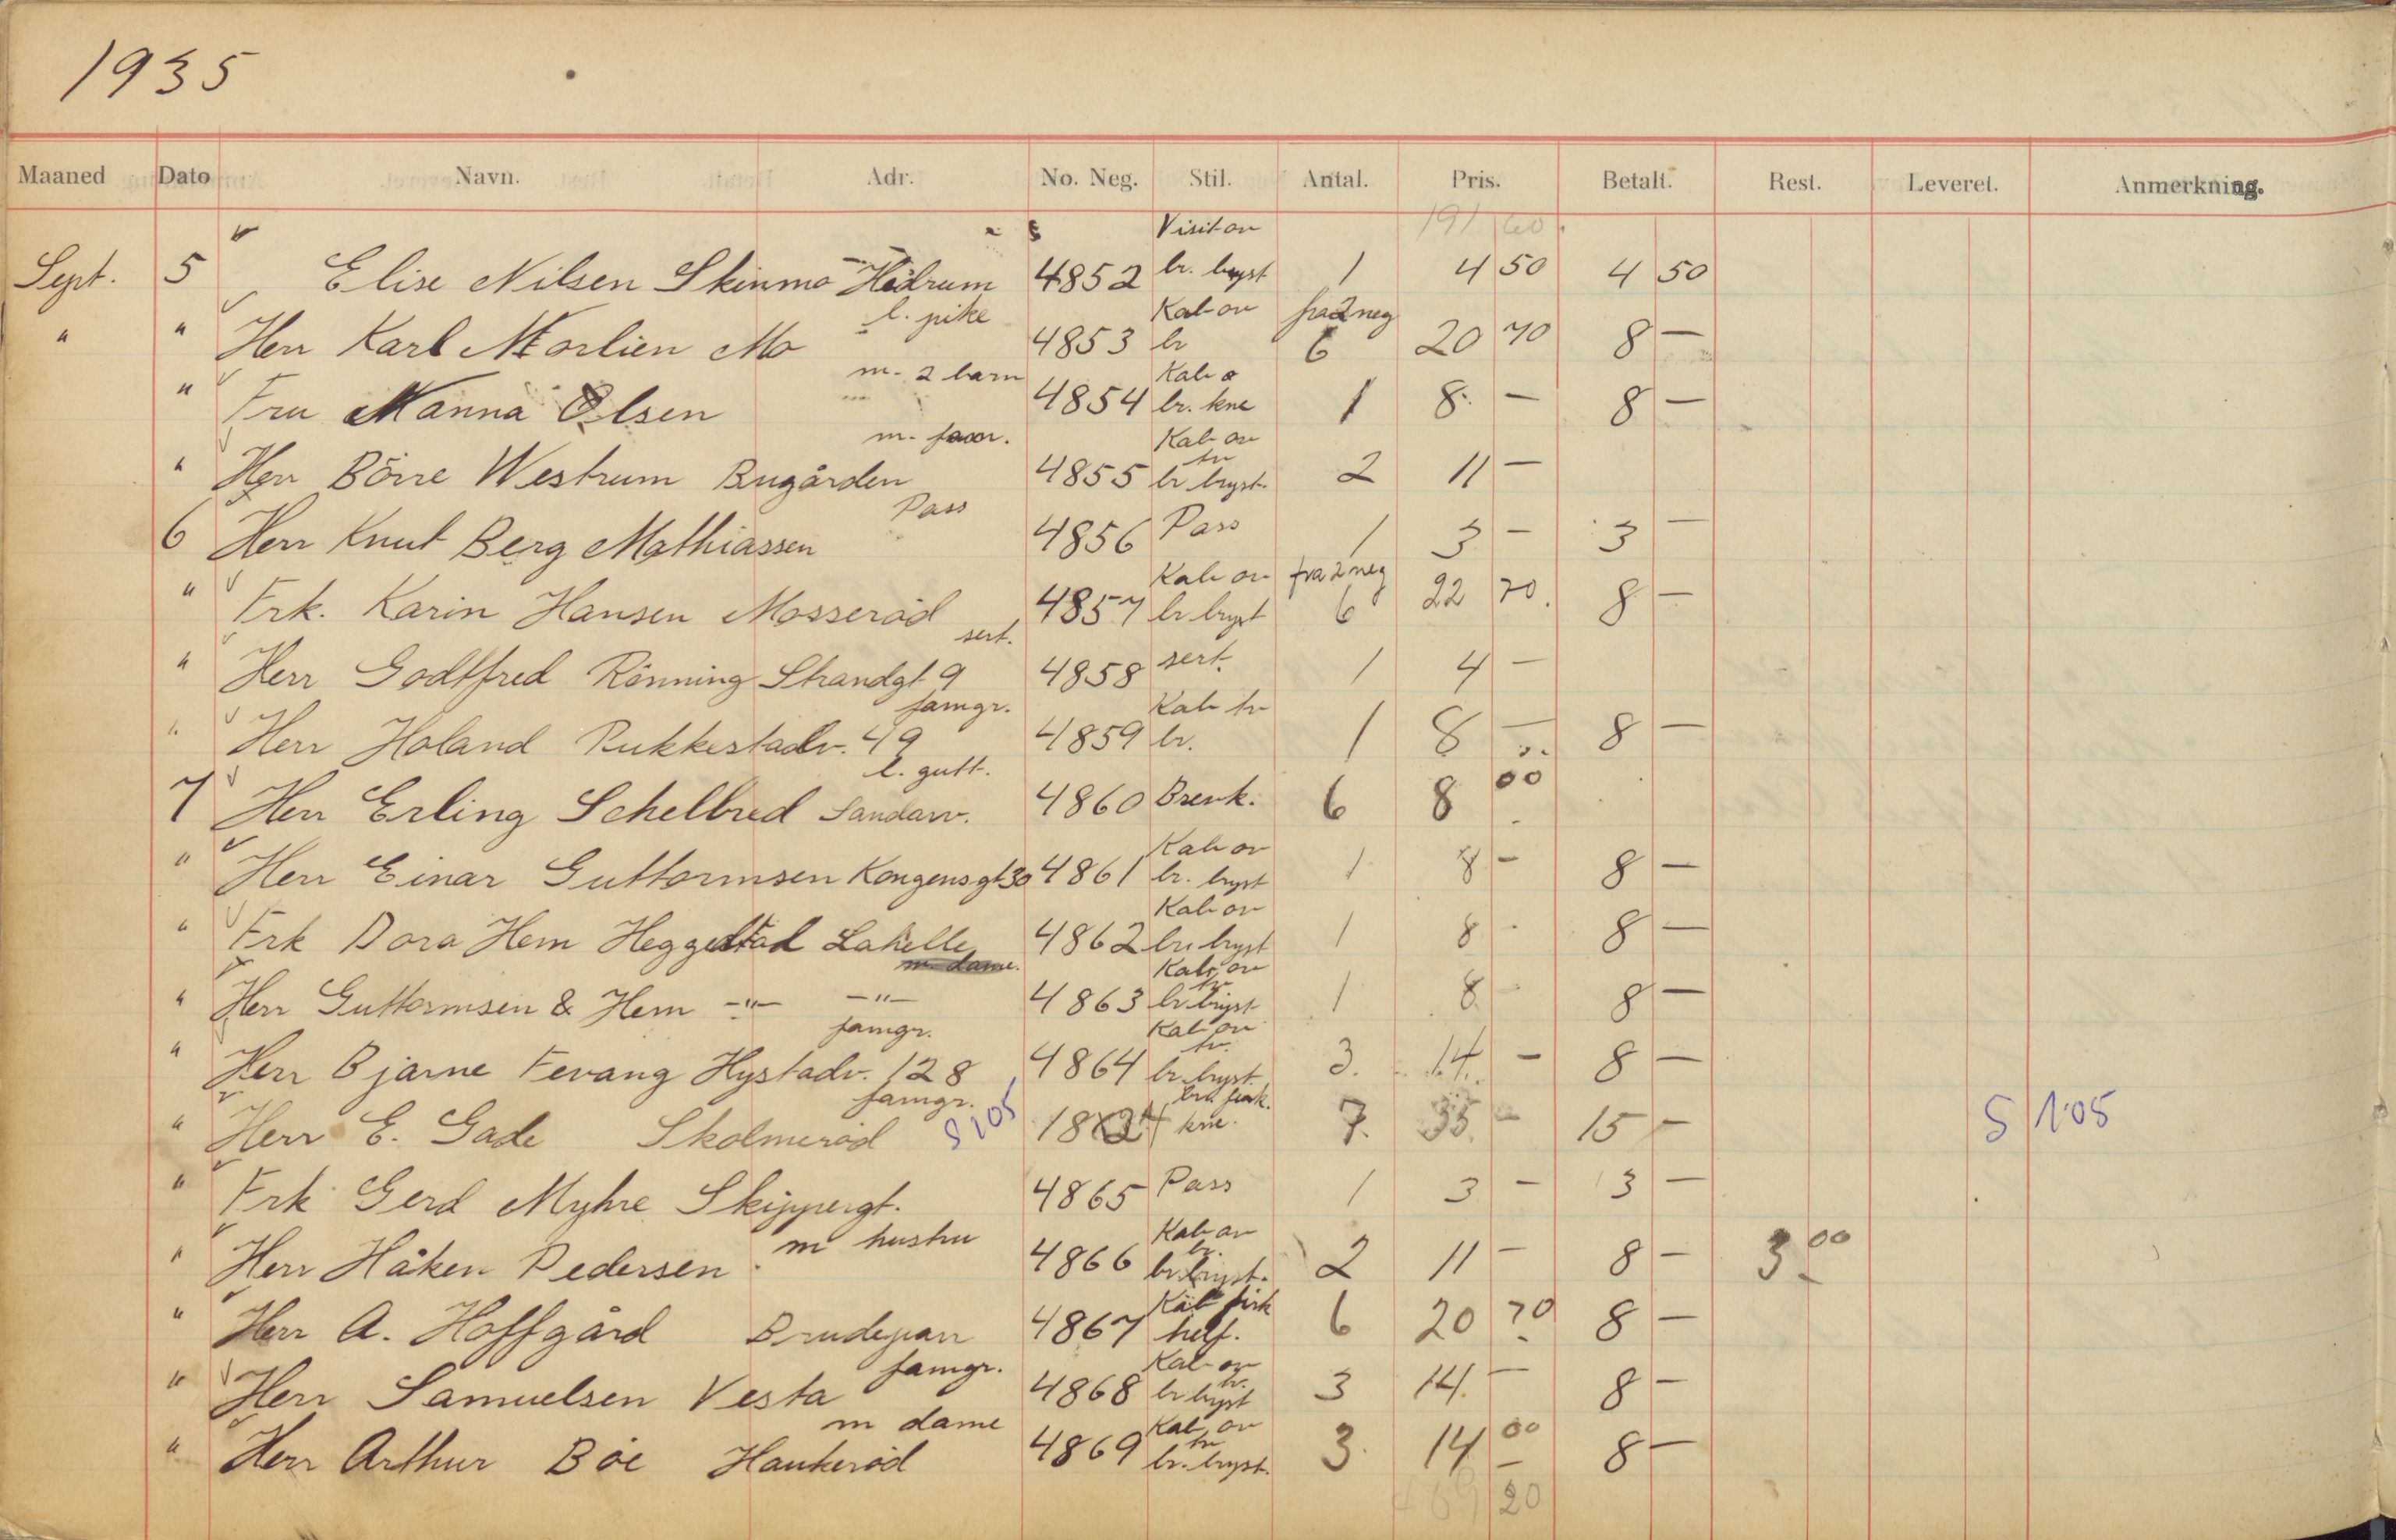 1935
Maaned Dato Navn. Adr. No. Neg. Stil. Antal. Pris. Betalt. Rest. Leveret. Anmerkning.
191 60
Visit ov
Sept. 5 Elise Nilsen Skinmo Hedrum 4852 br. bryst 1 4 50 4 50
l. pike Kab ov fra 2 neg
" " Herr Karl Morlien Mo 4853 br 6 20 70 8 —
m. 2 barn Kab o
" Fru Nanna Olsen 4854 br. kne 1 8. — 8 —
m. fam. Kab ov
tv
" Herr Börre Westrum Bugården 4855 br bryst. 2 11 —
Pass
6 Herr Knut Berg Mathiassen 4856 Pass 1 3 — 3 —
Kab ov fra 2 neg
" Frk. Karin Hansen Mosseröd 4857 br bryst 6 22 70. 8 —
sert.
" Herr Godtfred Rönning Strandgt 9 4858 sert. 1 4 —
famgr. Kab tv
" Herr Holand Pukkestadv. 49 4859 br. 1 8 — 8 —
l. gutt.
7 Herr Erling Schelbred Sandarv. 4860 Brevk. 6 8 00
Kab ov
" Herr Einar Guttormsen Kongensgt 30 4861 br. bryst 1 8 — 8 —
Kab ov
" Frk Dora Hem Heggestad Lahelle 4862 br. bryst 1 8 - 8 —
m dame. Kab ov
tv
" Herr Guttormsen & Hem —"— —"— 4863 br bryst 1 8 - 8 —
famgr. Kab ov
tv.
" Herr Bjarne Fevang Hystadv. 128 4864 br. bryst. 3. 14. — 8 —
famgr.
" Herr E. Gade Skolmeröd S 105 kne. 7. 35. — 15 — S 105
" Frk Gerd Myhre Skippergt. 4865 Pass 1 3 — 3 —
m hustru Kab ov
" Herr Håken Pedersen 4866 br. bryst. 2 11 — 8 — 3 00
Kab
" Herr A. Hoffgård Brudepar 4867 helf. 6 20 70 8 —
famgr. Kab ov
tv.
" Herr Samuelsen Vesta 4868 br bryst 3 14. — 8 —
m dame Kab ov
tv
" Herr Arthur Böe Haukeröd 4869 br. bryst. 3. 14 00 8 —
469 20